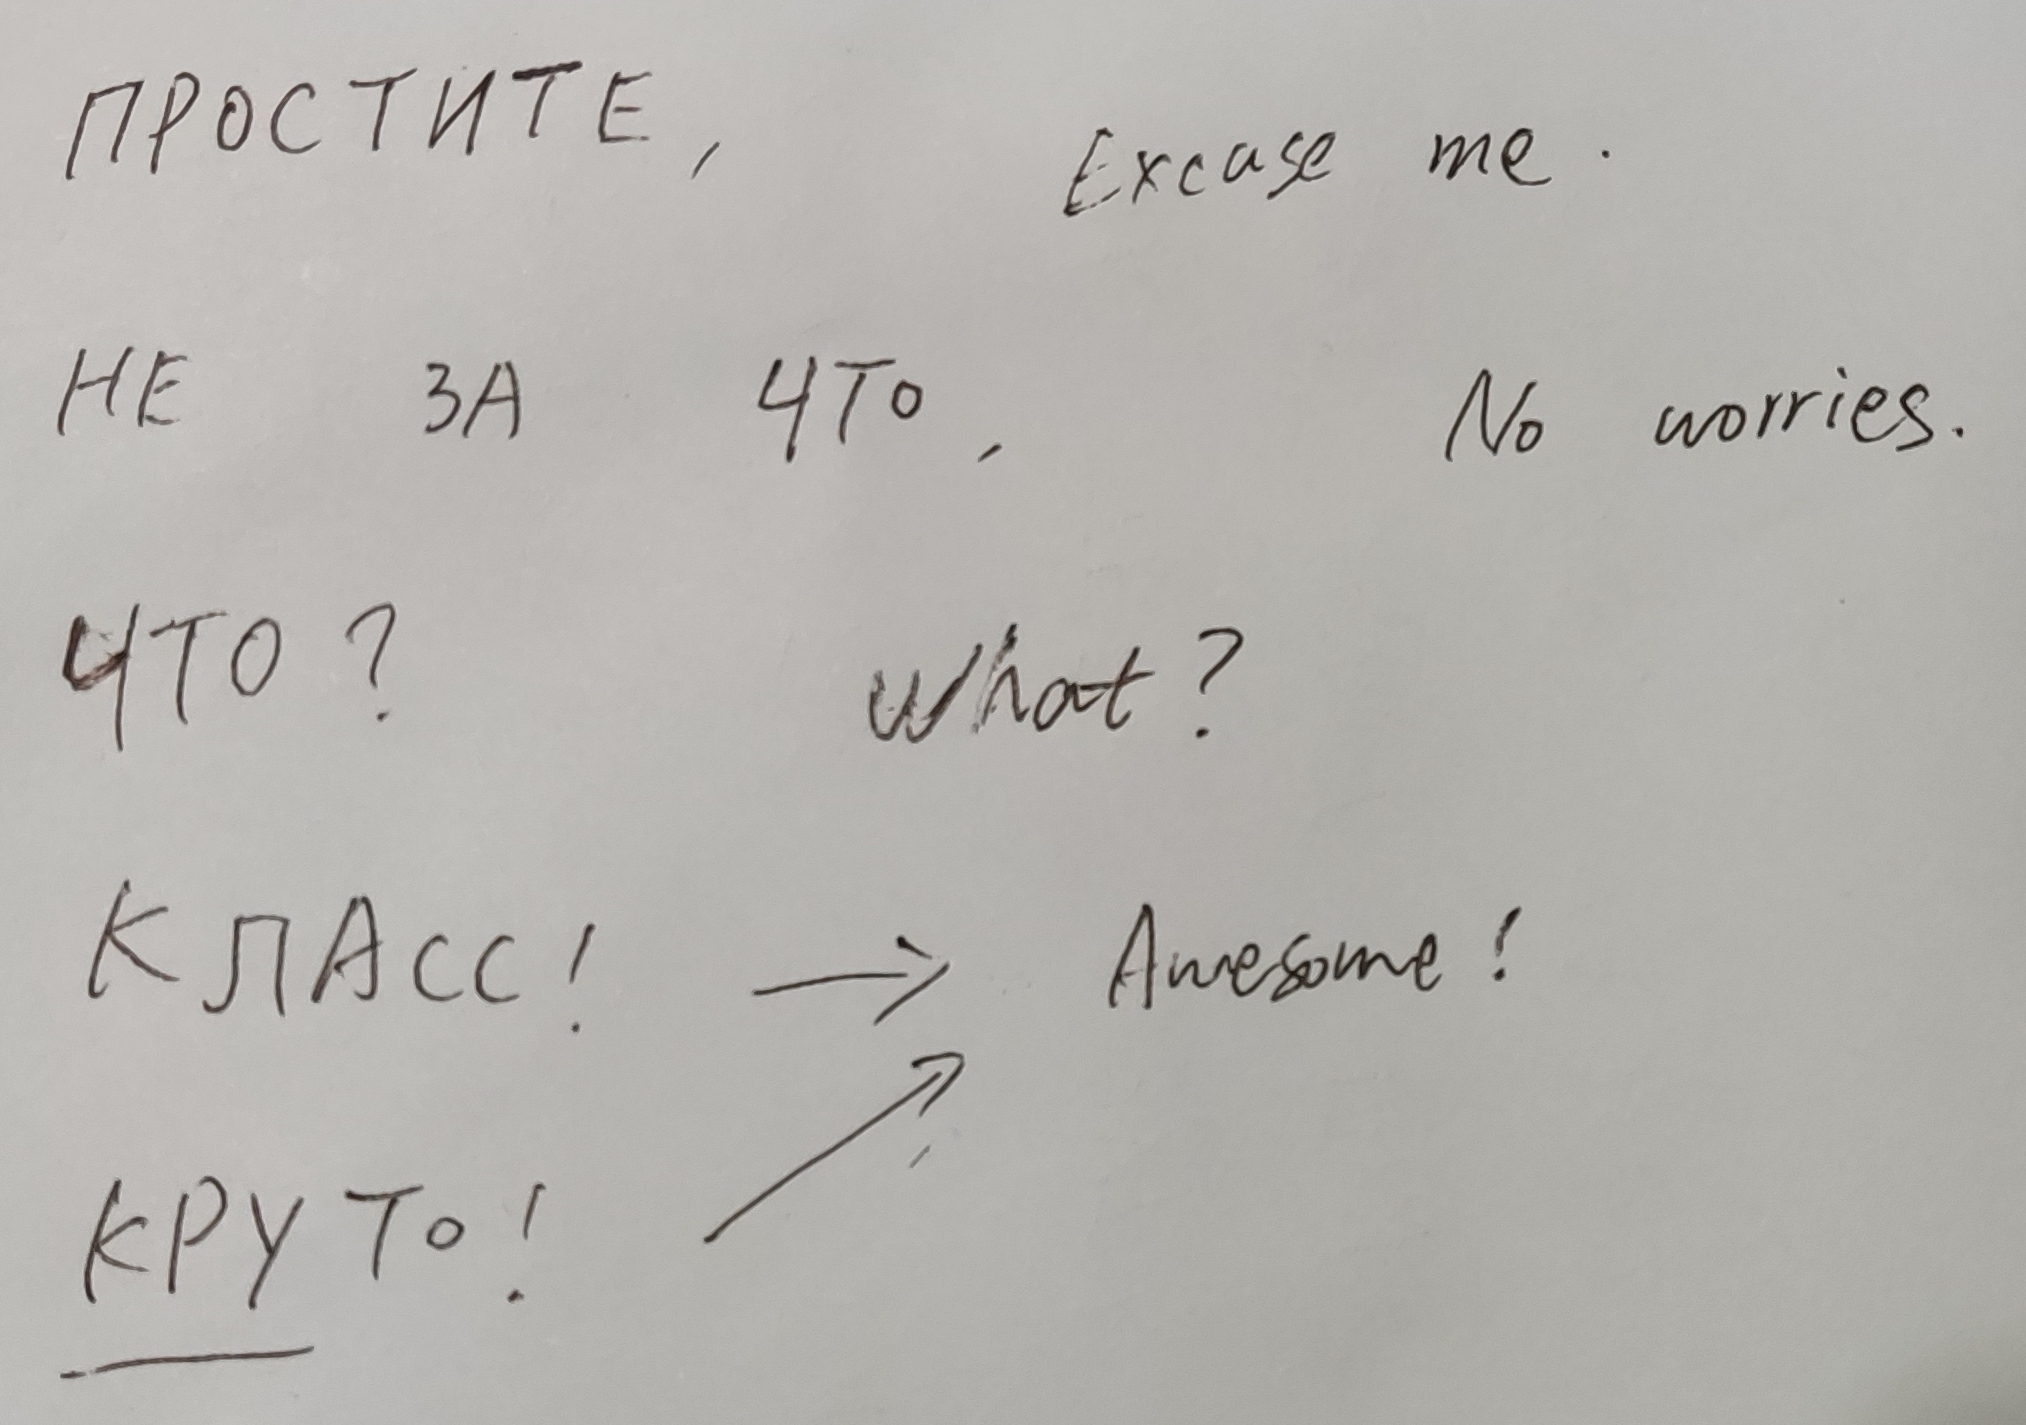 ПРОСТИТЕ, Excuse me.
НЕ ЗА ЧТО, No worries.
ЧТО? What?
КЛАСС! → Awesome!
КРУТО!